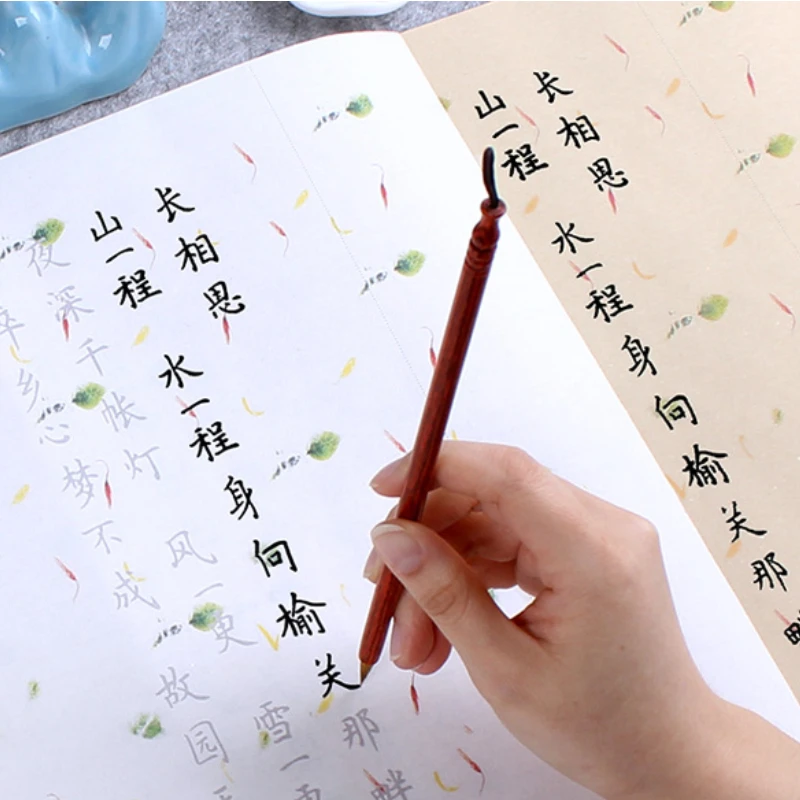 长相思
山一程 水一程身向榆关那畔
长相思
山一程 水一程身向榆关那畔
夜深千帐灯 风一更 雪一更
乡心梦不成 故园